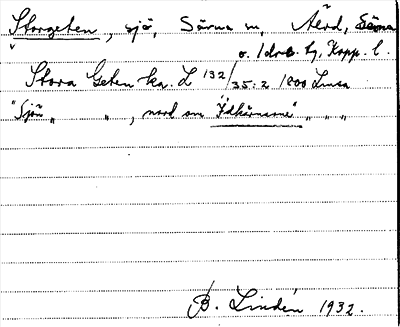 Storgeten, sjö, Särna sn, Älvd, Särna
o. Idre tg, Kopp. l.
Stora Geten ka. L 132/35:2 1800 Lmsa
"Sjön „ „, nord om "Idkärnarne" „ „ „
B. Lindén 1932.